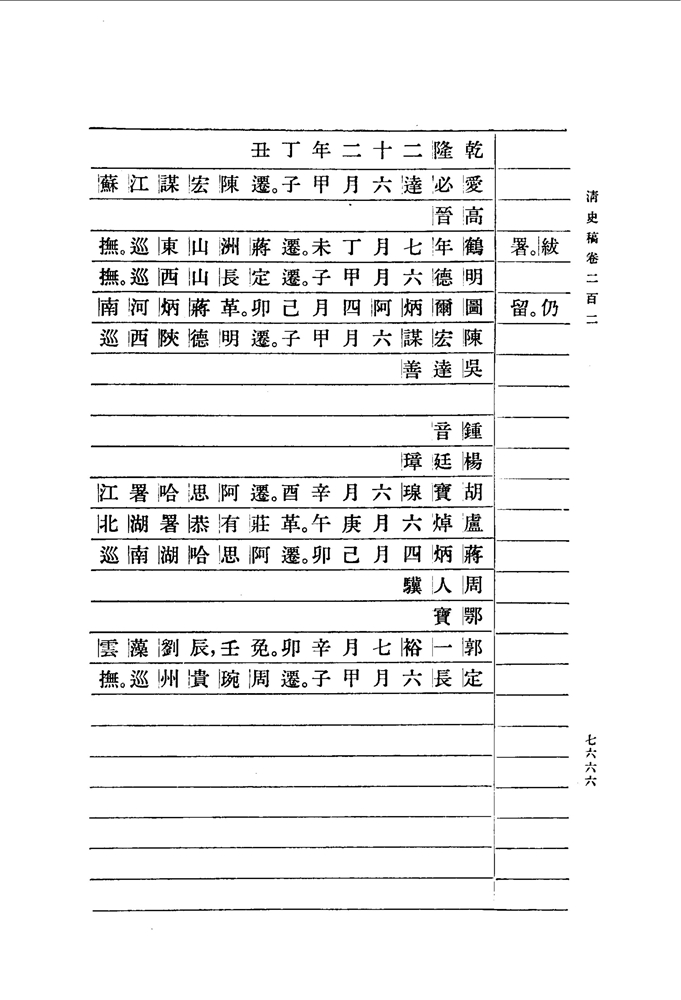 清史稿卷二百二
七六六六
紱署。
仍留。
乾隆二十二年丁丑
愛必達六月甲子遷。陳宏謀江蘇
高晉
鶴年七月丁未遷。蔣洲山東巡撫。
明德六月甲子遷。定長山西巡撫。
圖爾炳阿四月己卯革。蔣炳河南
陳宏謀六月甲子遷。明德陝西巡
吳達善
鍾音
楊廷璋
胡寶瑔六月辛酉遷。阿思哈署江
盧焯六月庚午革。莊有恭署湖北
蔣炳四月己卯遷。阿思哈湖南巡
周人驥
鄂寶
郭一裕七月辛卯免。壬辰,劉藻雲
定長六月甲子遷。周琬貴州巡撫。